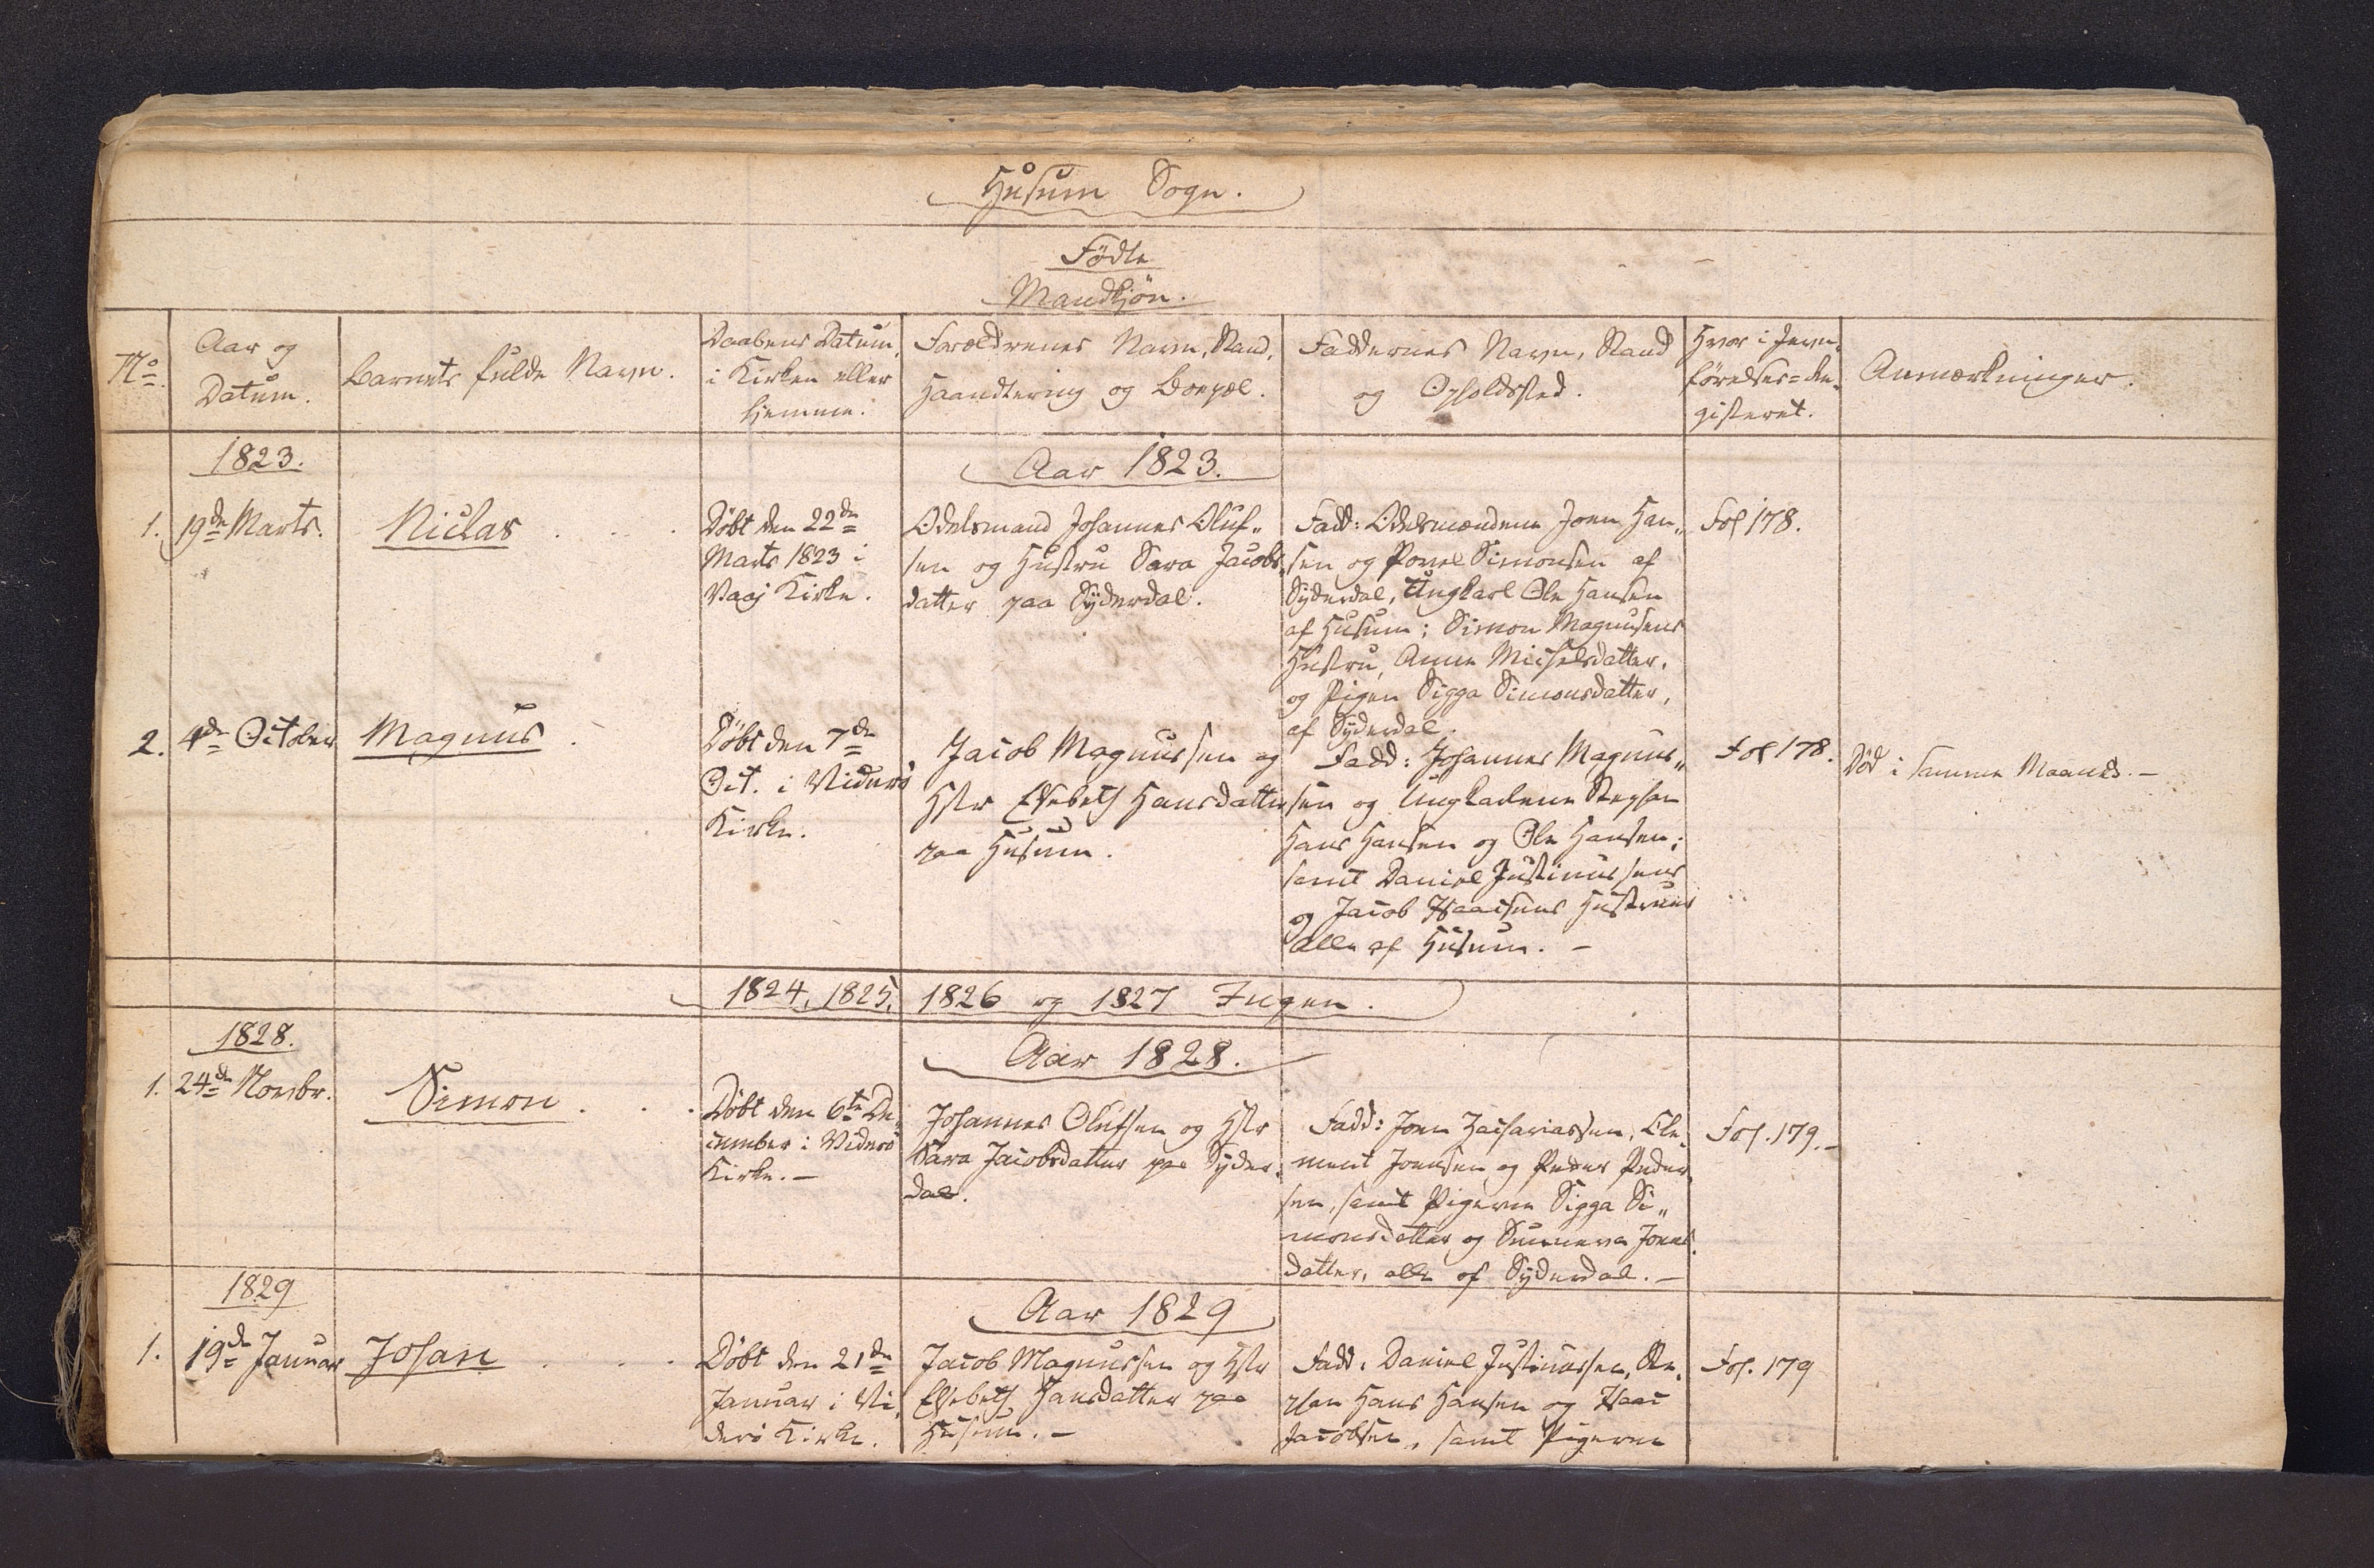 Husum Sogn.
Födte
Mandkjön.
No.
Aar og
Datum.
Barnets fulde Navn.
Daabens Datum,
i Kirken eller
hjemme.
Forældrenes Navn, Stand,
Haandtering og Boepæl.
Faddernes Navn, Stand
og Opholdssted.
Hvor i Jevn-
förelses-Re-
gisteret.
Anmærkninger.
1823.
Aar 1823.
1.
19de Marts.
Niclas
Döbt den 22de
Marts 1823 i
Vaaj Kirke.
Odelsmand Johannes Oluf„
sen og Hustru Sara Jacobs„
datter paa Syderdal.
Fadd: Odelsmændene Joen Han„
sen og Povel Simonsen af
Syderdal, Ungkarl Ole Hansen
af Husum; Simon Magnusens
Hustru, Anne Michelsdatter,
og Pigen Sigga Simonsdatter,
af Syderdal.
Fol 178.
2.
4de October
Magnus
Döbt den 7de
Oct. i Viderö
Kirke.
Jacob Magnussen og
Hstr Elsebeth Hansdatter
paa Husum.
Fadd: Johannes Magnus„
sen og Ungkarlene Stephan
Hans Hansen og Ole Hansen;
samt Daniel Justinussens
og Jacob Isaacsens Hustruer
alle af Husum. -
Fol 178.
Död i samme Maaned. -
1824, 1825, 1826 og 1827 Ingen.
1828.
Aar 1828.
1.
24de Novbr.
Simon
Döbt den 6te De„
cember i Viderö
Kirke. -
Johannes Olufsen og Hstr
Sara Jacobsdatter paa Syder„
dal.
Fadd: Joen Zachariassen, Cle„
ment Joensen og Peder Peder„
sen, samt Pigerne Sigga Si„
monsdatter og Sunneva Joens„
datter, alle af Syderdal. -
Fol. 179. -
1829
Aar 1829
1.
19de Januar
Johan
Döbt den 21de
Januar i Vi„
derö Kirke.
Jacob Magnussen og Hstr
Elsebeth Hansdatter paa
Husum. -
Fadd: Daniel Justinussen, Ste„
phan Hans Hansen og Isaac
Jacobsen, samt Pigerne
Fol. 179